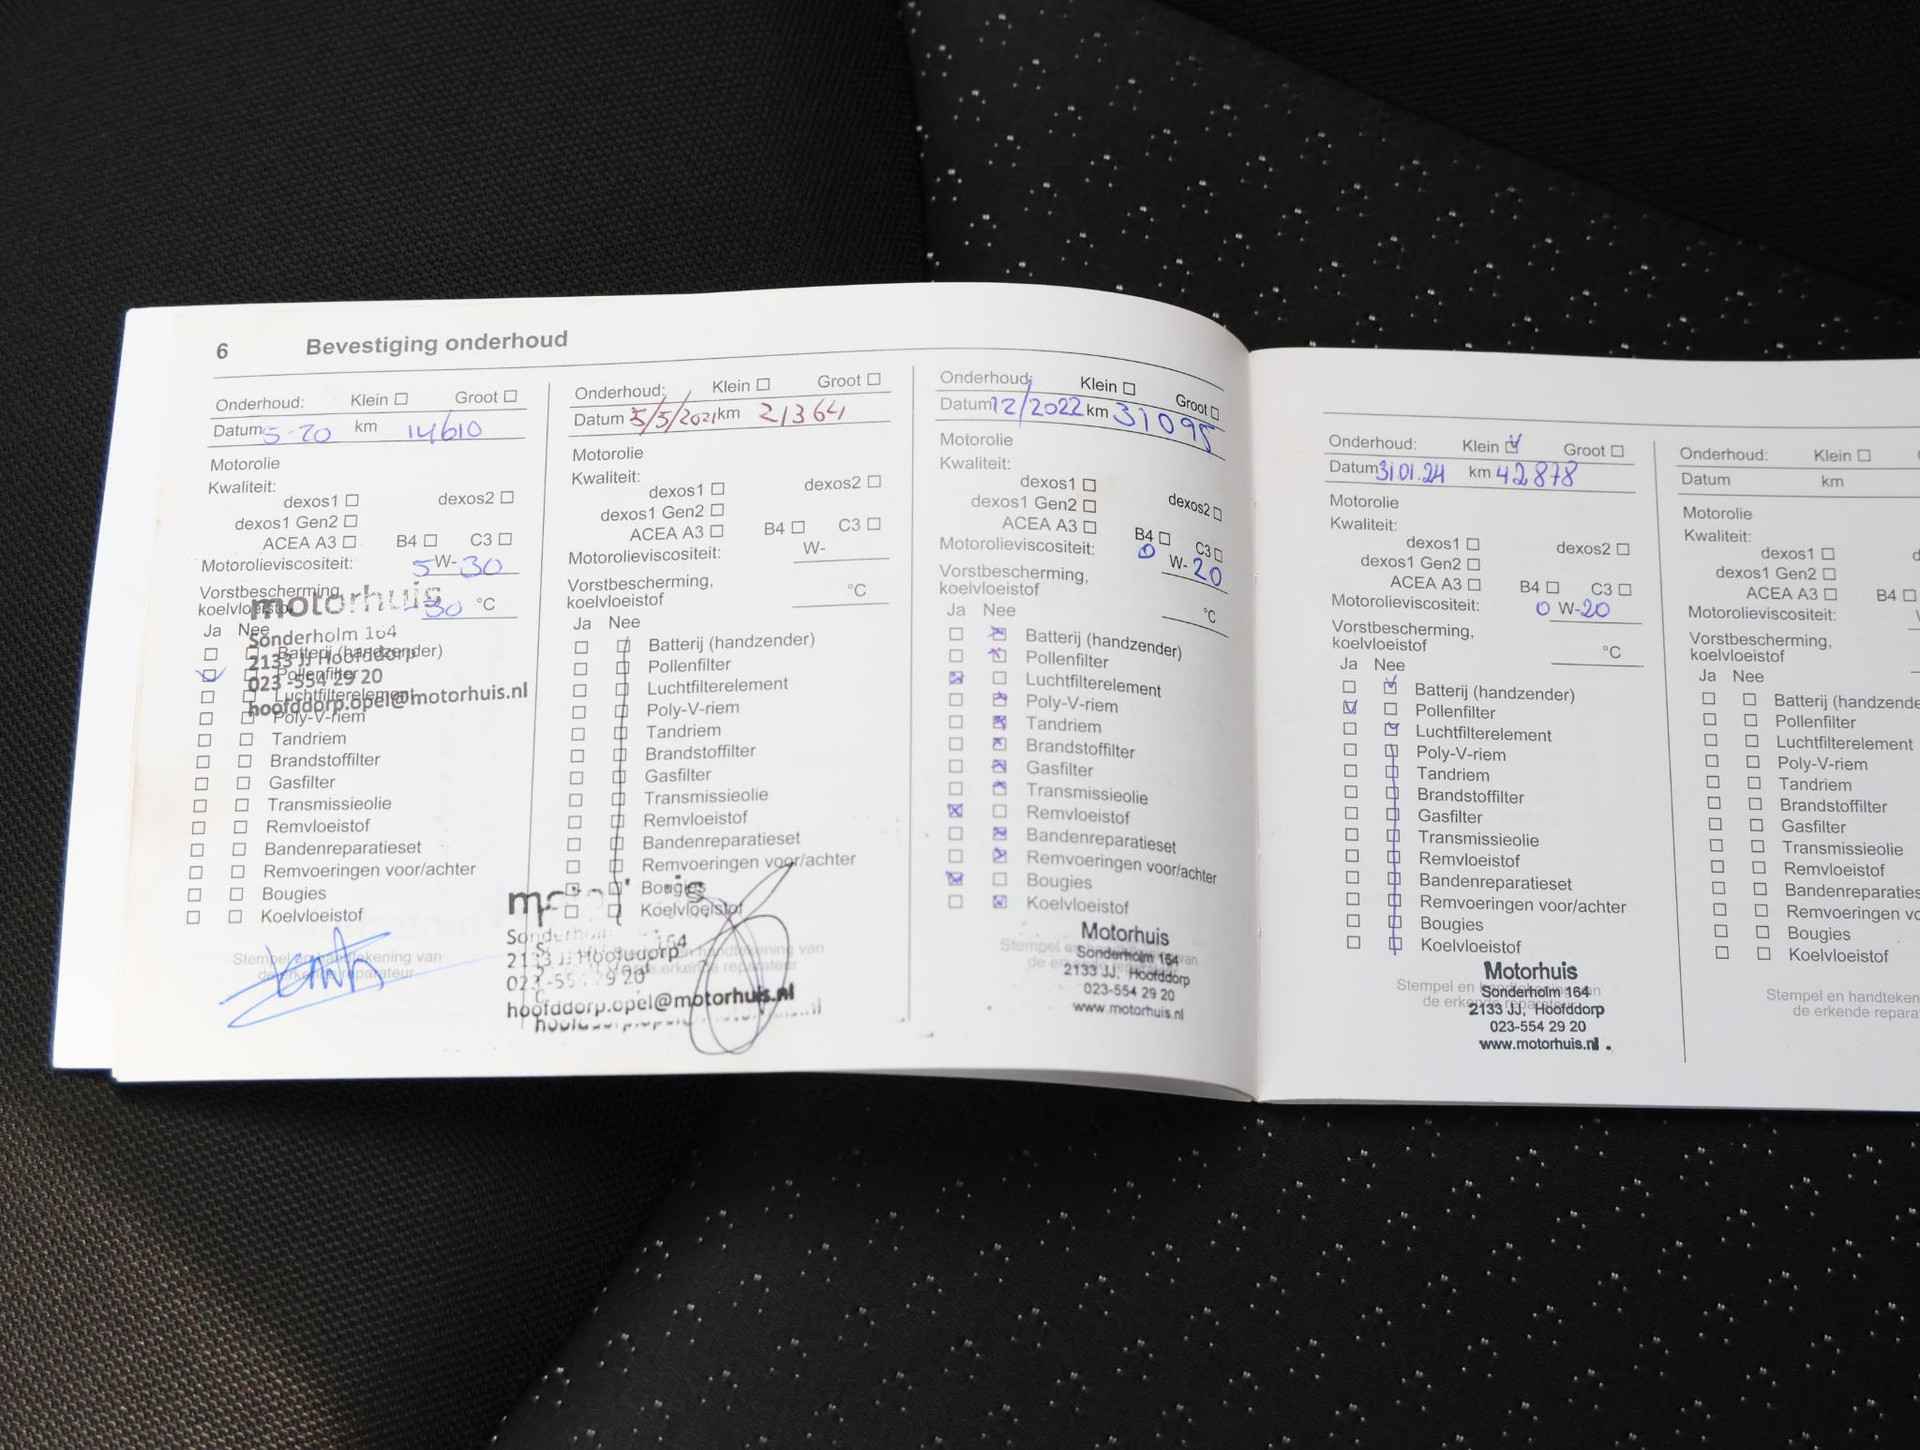 6 Bevestiging onderhoud
Onderhoud: Klein Groot
Datum 5-20 km 14610
Motorolie
Kwaliteit:
dexos1 dexos2
dexos1 Gen2
ACEA A3 B4 C3
Motorolieviscositeit: 5 W-30
Vorstbescherming,
koelvloeistof -30 °C
motorhuis
Sonderholm 164
2133 JJ Hoofddorp
023 -554 29 20
hoofddorp.opel@motorhuis.nl
Ja Nee
Batterij (handzender)
Pollenfilter
Luchtfilterelement
Poly-V-riem
Tandriem
Brandstoffilter
Gasfilter
Transmissieolie
Remvloeistof
Bandenreparatieset
Remvoeringen voor/achter
Bougies
Koelvloeistof
Stempel en handtekening van
de erkende reparateur
Onderhoud: Klein Groot
Datum 5/5/2021 km 21364
Motorolie
Kwaliteit:
dexos1 dexos2
dexos1 Gen2
ACEA A3 B4 C3
Motorolieviscositeit: W-
Vorstbescherming,
koelvloeistof °C
Ja Nee
Batterij (handzender)
Pollenfilter
Luchtfilterelement
Poly-V-riem
Tandriem
Brandstoffilter
Gasfilter
Transmissieolie
Remvloeistof
Bandenreparatieset
Remvoeringen voor/achter
Bougies
Koelvloeistof
Sonderholm 164
2133 JJ Hoofddorp
hoofddorp.opel@motorhuis.nl
Onderhoud: Klein Groot
Datum 12/2022 km 31095
Motorolie
Kwaliteit:
dexos1 dexos2
dexos1 Gen2
ACEA A3 B4 C3
Motorolieviscositeit: 0 W-20
Vorstbescherming,
koelvloeistof °C
Ja Nee
Batterij (handzender)
Pollenfilter
Luchtfilterelement
Poly-V-riem
Tandriem
Brandstoffilter
Gasfilter
Transmissieolie
Remvloeistof
Bandenreparatieset
Remvoeringen voor/achter
Bougies
Koelvloeistof
Motorhuis
Sonderholm 164
2133 JJ, Hoofddorp
023-554 29 20
www.motorhuis.nl
Onderhoud: Klein Groot
Datum 31.01.24 km 42878
Motorolie
Kwaliteit:
dexos1 dexos2
dexos1 Gen2
ACEA A3 B4 C3
Motorolieviscositeit: 0 W-20
Vorstbescherming,
koelvloeistof °C
Ja Nee
Batterij (handzender)
Pollenfilter
Luchtfilterelement
Poly-V-riem
Tandriem
Brandstoffilter
Gasfilter
Transmissieolie
Remvloeistof
Bandenreparatieset
Remvoeringen voor/achter
Bougies
Koelvloeistof
Motorhuis
Sonderholm 164
2133 JJ, Hoofddorp
023-554 29 20
www.motorhuis.nl
Onderhoud: Klein
Datum km
Motorolie
Kwaliteit:
dexos1
dexos1 Gen2
ACEA A3 B4
Motorolieviscositeit:
Vorstbescherming,
koelvloeistof
Ja Nee
Batterij (handzende
Pollenfilter
Luchtfilterelement
Poly-V-riem
Tandriem
Brandstoffilter
Gasfilter
Transmissieolie
Remvloeistof
Bandenreparaties
Remvoeringen vo
Bougies
Koelvloeistof
Stempel en handteken
de erkende repara